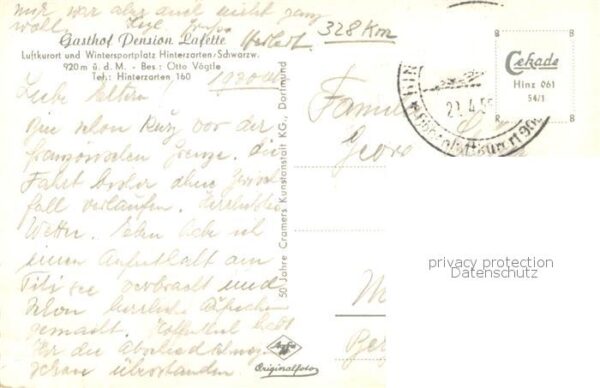 mir, war aber auch nicht ganz
wohl. Hzl. Gruß
Herbert. 328 Km
Gasthof Pension Lafette
Luftkurort und Wintersportplatz Hinterzarten/Schwarzw.
920 m ü. d. M. - Bes.: Otto Vögtle
Tel.: Hinterzarten 160
Liebe Eltern!
Bin schon kurz vor der
französischen Grenze. die
Fahrt bisher ohne Zwischen
fall verlaufen. herrliches
Wetter. Eben habe ich
einen Aufenthalt am
Titisee verbracht und
schon herrliche Aufnahmen
gemacht. Hoffentlich habt
Ihr die
schon überstanden.
50 Jahre Cramers Kunstanstalt KG., Dortmund
Agfa
Originalfoto
Cekade
Hinz 061
54/1
B B
B B
21.4.5
Famil
Geor
M
Ber
privacy protection
Datenschutz